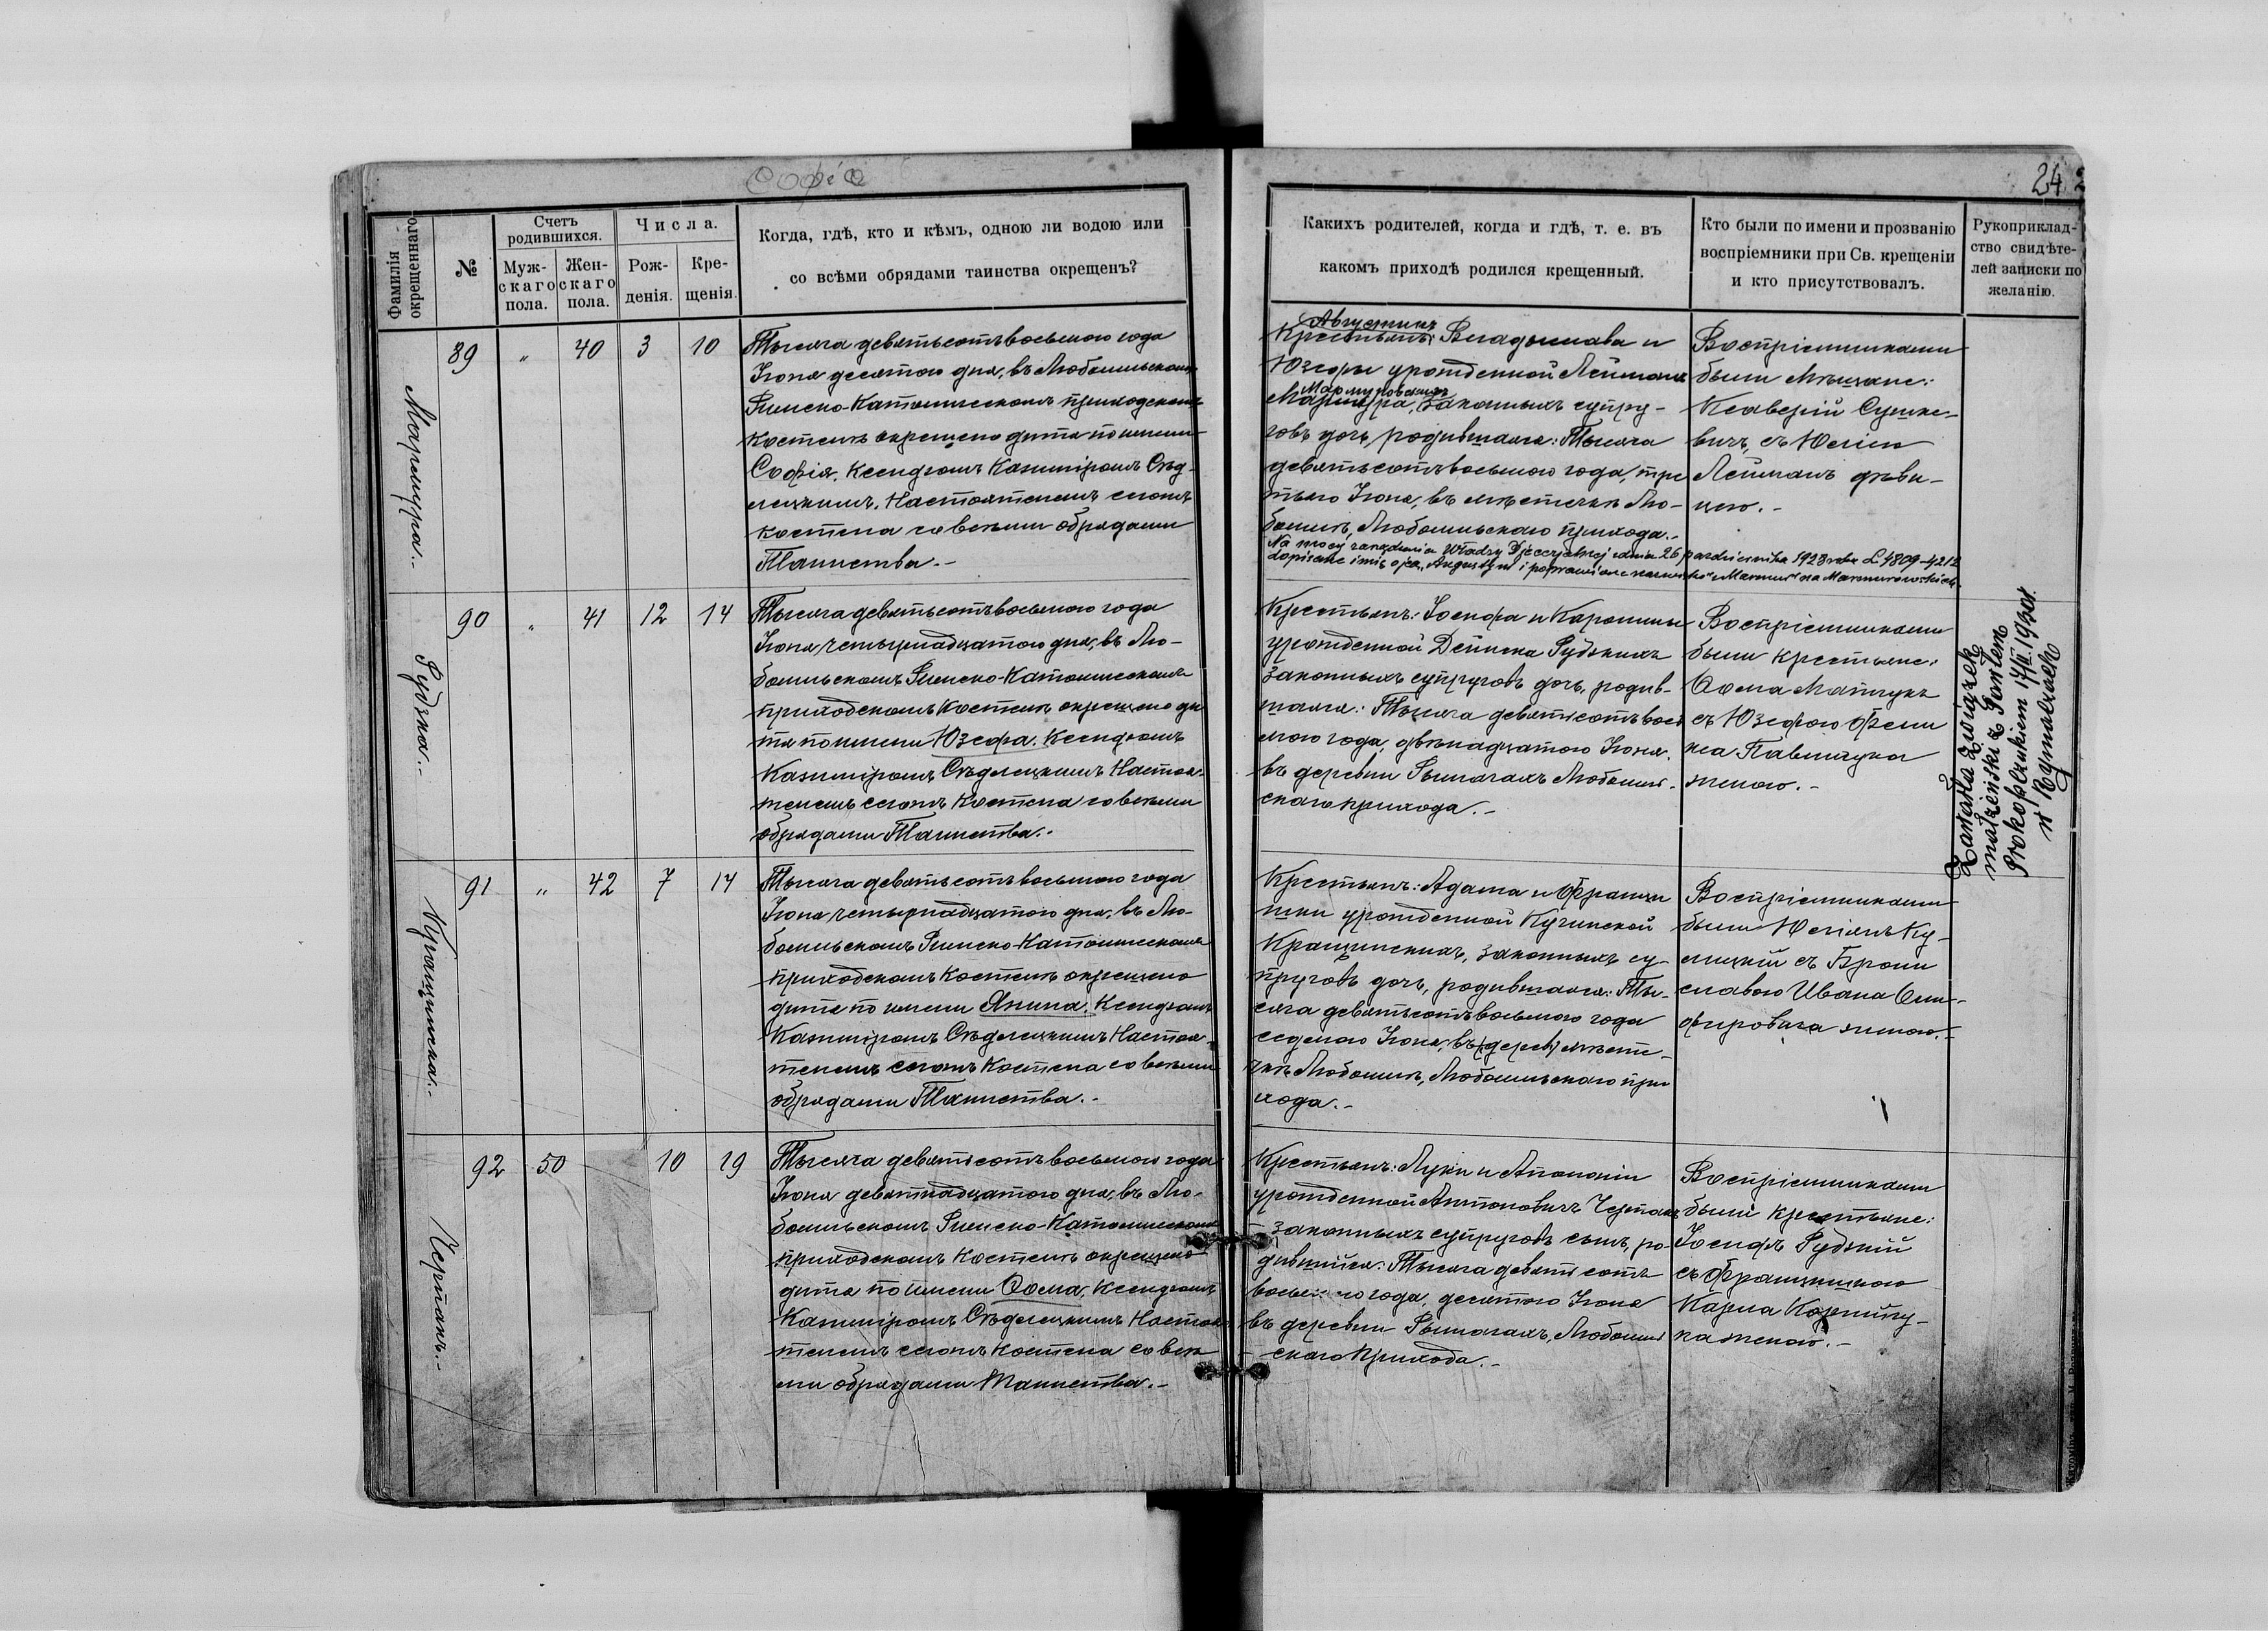 Софія
24
Фамилія окрещеннаго
№
Счетъ родившихся.
Муж-
скаго
пола.
Жен-
скаго
пола.
Числа.
Рож-
денія.
Кре-
щенія.
Когда, гдѣ, кто и кѣмъ, одною ли водою или
со всѣми обрядами таинства окрещенъ?
Какихъ родителей, когда и гдѣ, т. е. въ
какомъ приходѣ родился крещенный.
Кто были по имени и прозванію
воспріемники при Св. крещеніи
и кто присутствовалъ.
Рукоприклад-
ство свидѣте-
лей записки по
желанію.
Мармура.-
89 " 40 3 10
Тысяча девятьсотъ восьмого года
Іюня десятого дня, въ Любомльскомъ
Римско-Католическомъ приходскомъ
костелѣ окрещено дитя по имени
Софія, Ксендзомъ Казиміромъ Сѣд-
лецкимъ, Настоятелемъ сего
костела со всѣми обрядами
Таинства.-
Августинъ
Крестьянъ: Владыслава и
Юзефы урожденной Лейманъ
Мармуровскихъ
Мармура, законныхъ супру-
говъ дочь, родившаяся: Тысяча
девятьсотъ восьмого года, тре
тьяго Іюня, въ мѣстечкѣ Лю-
бомлѣ, Любомльскаго прихода.-
Na mocy zarządzenia Władzy Diecezjalnej z dnia 26 października 1928 roku L 4809-4212
dopisane imię ojca "Augustyn" i poprawione nazwisko "Marmur" na Marmurowskich.
Воспріемниками
были Мѣщане:
Ксаверій Сушке-
вичъ, съ Юліею
Лейманъ дѣви-
цею.-
Рудзка.-
90 " 41 12 14
Тысяча девятьсотъ восьмого года
Іюня четырнадцатого дня, въ Лю-
бомльскомъ Римско-Католическомъ
приходскомъ Костелѣ окрещено ди
тя по имени Юзефа, Ксендзомъ
Казиміромъ Сѣдлецкимъ Настоя-
телемъ сего Костела со всѣми
обрядами Таинства.-
Крестьянъ: Іосифа и Каролины
урожденной Дейнека Рудзкихъ
законныхъ супруговъ дочь, родив-
шаяся: Тысяча девятьсотъ вось
мого года, двѣнадцатого Іюня,
въ деревни Рымачахъ Любомль-
скаго прихода.-
Воспріемниками
были крестьяне:
Ѳома Матчукъ
съ Юзефою Фели
кса Павлчука
женою.-
Zawarła związek
małżeński z Pawłem
Prokopiukiem
w Rymaczach
Кращинска.-
91 " 42 7 14
Тысяча девятьсотъ восьмого года
Іюня четырнадцатого дня, въ Лю-
бомльскомъ Римско-Католическомъ
приходскомъ Костелѣ окрещено
дитя по имени Янина, Ксендзомъ
Казиміромъ Сѣдлецкимъ Настоя-
телемъ сего Костела со всѣми
обрядами Таинства.-
Крестьянъ: Адама и Францы
шки урожденной Кучинской
Кращинскихъ, законныхъ су-
пруговъ дочь, родившаяся: Ты-
сяча девятьсотъ восьмого года
седьмого Іюня, въ (дерев) мѣсте-
чкѣ Любомлѣ, Любомльскаго при
хода.-
Воспріемниками
были Юліянъ Ку-
лицкій съ Брони
славою Ивана Они-
фировича женою.-
Чертакъ.-
92 50 10 19
Тысяча девятьсотъ восьмого года
Іюня девятнадцатого дня, въ Лю-
бомльскомъ Римско-Католическомъ
приходскомъ Костелѣ окрещено
дитя по имени Ѳома, Ксендзомъ
Казиміромъ Сѣдлецкимъ Настоя-
телемъ сего Костела со всѣ
ми обрядами Таинства.-
Крестьянъ: Луки и Аполоніи
урожденной Антоновичъ Чертакъ
законныхъ супруговъ сынъ, ро-
дившійся: Тысяча девятьсотъ
восьмого года, десятого Іюня
въ деревни Рымачахъ, Любомль
скаго Прихода.-
Воспріемниками
были крестьяне:
Іосифъ Рудзкій
съ Францишкою
Карла Корнійчу-
ка женою.-